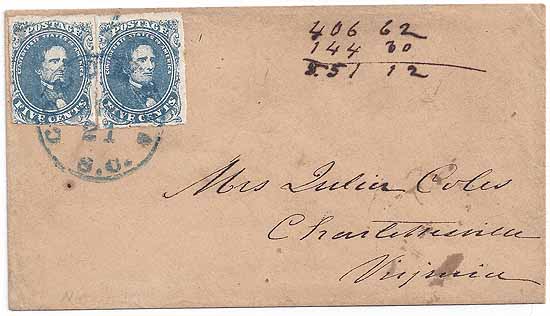 POSTAGE POSTAGE
CONFEDERATE STATES OF AMERICA CONFEDERATE STATES OF AMERICA
FIVE CENTS FIVE CENTS
21
S.C.
406 62
144 50
551 12
Mrs Julia Coles
Charlottesville
Virginia